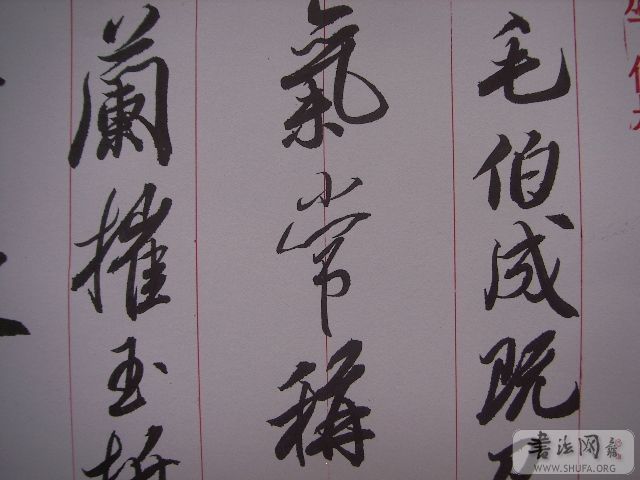 毛伯成既
氣常稱
蘭摧玉
书法网
WWW.SHUFA.ORG